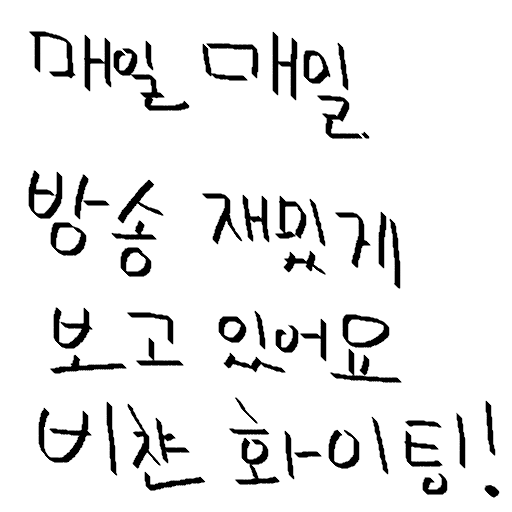 매일 매일
방송 재밌게
보고 있어요
비챤 화이팅!